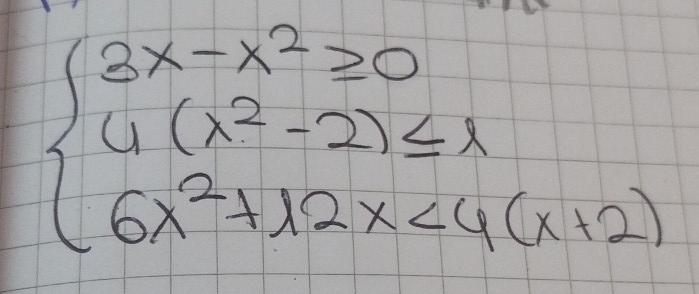 3x - x² ≥ 0
4(x² - 2) ≤ 1
6x² + 12x < 4(x + 2)